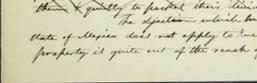 them & quietly to pocket their
The objection which
State of Mexico does not apply to
property is quite out of the reach of